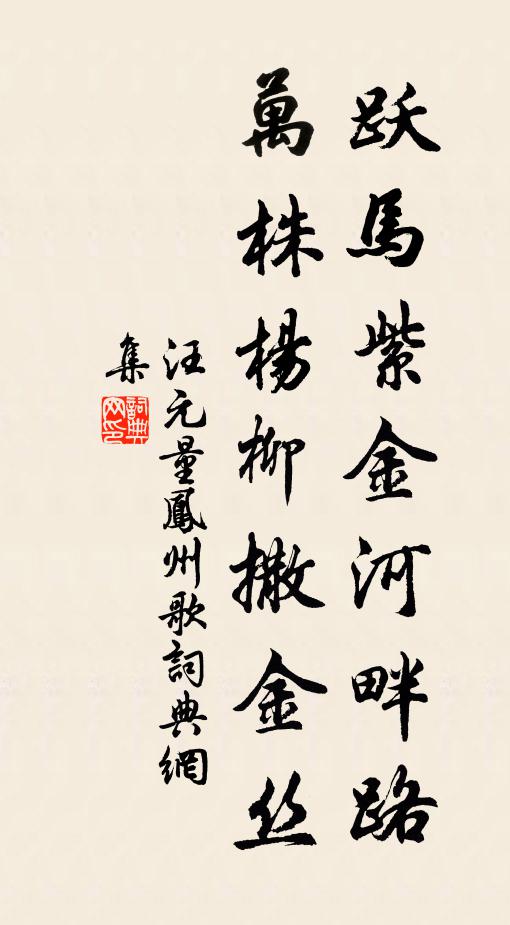 跃馬紫金河畔路
萬株楊柳撒金丝
汪元量鳳州歌詞典網
集
詞典網印